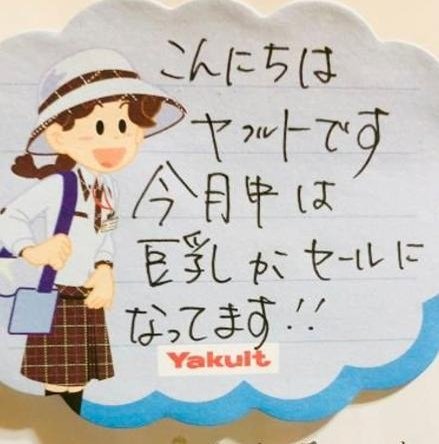 こんにちは
ヤクルトです
今月中は
巨乳が セールに
なってます!!
Yakult